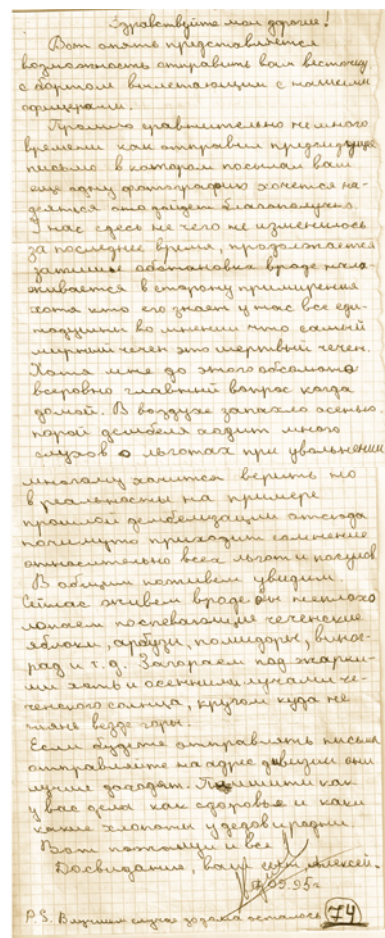 Здравствуйте мои дорогие!
Вот опять представляется
возможность отправить вам весточку
с бортом вылетающим с нашими
офицерами.
Прошло сравнительно не много
времени как отправил предыдущее
письмо в котором посылал вам
еще одну фотографию хочется на-
деятся что дойдет благополучно.
У нас сдесь не чего не изменилось
за последнее время, продолжается
затишье обстановка вроде нала-
живается в сторону примирения
хотя кто его знает у нас все еди-
нодушны во мнении что самый
мирный чечен это мертвый чечен.
Хотя мне до этого абсолютно
всеровно главный вопрос когда
домой. В воздухе запахло осенью
порой дембеля ходит много
слухов о льготах при увольнении
многому хочится верить но
в реальности на примере
прошлой дембелизации отсюда
почимуто приходит сомнение
относительно всех льгот и посулов.
В общим поживем увидим.
Сейчас живем вроде бы неплохо
лопаем поспевающие чеченские
яблоки, арбузы, помидоры, виног-
рад и т.д. Загораем под жарки-
ми хоть и осенними лучами че-
ченского солнца, кругом куда не
глянь везде горы.
Если будете отправлять письма
отправляйте на адрес дивизии они
лучше доходят. Пишити как
у вас дела как здоровье и как
какие хлопоты у дедов и родни.
Вот пожалуй и все
Досвидание, ваш сын Алексей.
09.95г
P.S. В лучшем случае до дома осталось 74